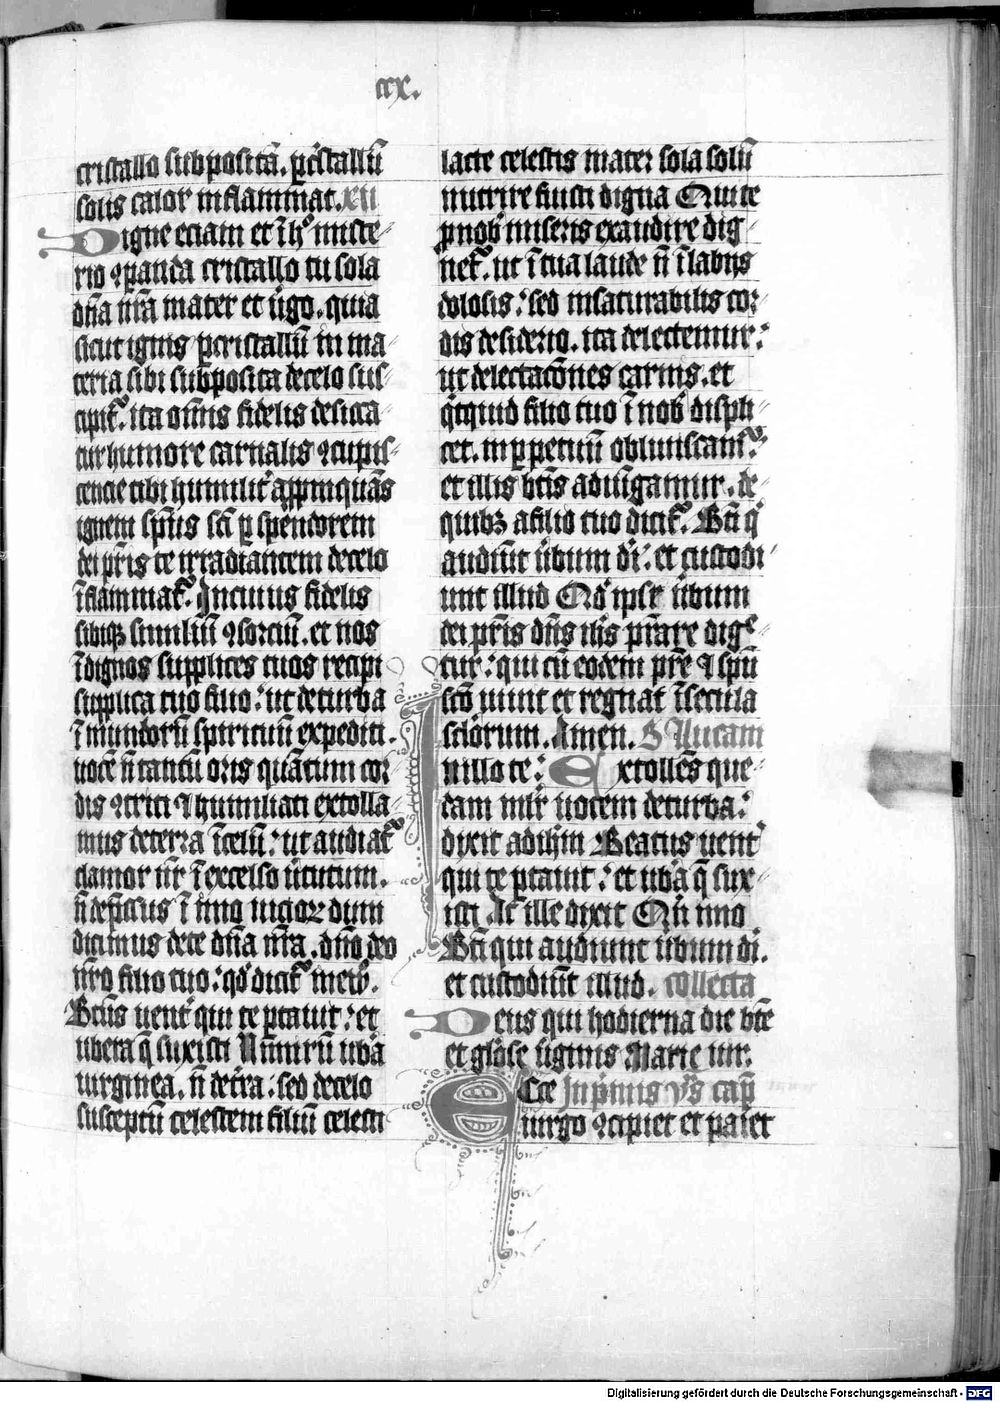 ccx.
cristallo subpositā. ꝑcristallū
solis calor inflammat. xii
Digne eciam et ī hͦ miste-
rio ꝯparıda cristallo tu sola
dn̄a nr̄a mater et v̓go. quia
sicut ignis ꝑcristallū in ma-
teria sibi subposita decelo sus-
cipit᷑. ita om̄is fidelis desicca-
tur humore carnalis ꝯcupis-
cencie tibi humilit᷑ appinquās
ignem spūs sc̄i ꝑ spendorem
dei pr̄is te irradiantem decelo
īflammat᷑. In cuius fidelis
sibiqꝫ similiū ꝯsorciū. et nos
īdignos supplices tuos recipi
supplica tuo filio. ut deturba
ī mundorū spirituū expediti.
uoce n̄ tantū oris quātum cor-
dis ꝯtriti ⁊ humiliati extolla-
mus deterra ī celū. ut audiat᷑
clamor nr̄ ī excelso v̓tutum.
n̄ deficius ī imo iugiorꝫ dum
dicimus dete dn̄a nr̄a. dn̄o deo
nr̄o filio tuo. qd̓ dict᷑ meth̓.
Bc̄us uent᷑ qui te ꝑtauit. et
ubera q̄ suxisti Nimirū ub̓a
uirginea. n̄ det̓ra. sed decelo
susceptū celestem filiū celesti
lacte celestis mater sola solū
nutrire fuisti digna Qui te
ꝓnob̓ miseris exaudire dig-
net᷑. ut ī tua laude n̄ ī labijs
dolosis. sed insaturabilis cor-
dis desiderio. ita delectemur.
ut delectac̄ones carnis. et
qͥcquid filio tuo ī nob̓ displi-
cet. in ꝑpetuū obliuiscam᷑.
et illis bt̄is adiūgamur. de-
quibꝫ afilio tuo dicit᷑. Bt̄i qͥ
audiūt v̓bum di̓. et custodi
unt illud Qd̓ ipse v̓bum
dei pr̄is dn̄s ih̄s pr̄are dig-
tur. qui cū eodem pr̄e ⁊ spū
sc̄o uiuit et regnat ī secula
sc̄lorum. Amen. S Lucam
In illo te. Extollēs que-
dam ml̓r uocem deturba.
dixit adih̄m Beatus uent᷑
qui te ꝑtauit. et ub̓a q̄ sux-
isti At ille dixit Qn̄ imo
Bt̄i qui audiunt v̓bum di̓.
et custodiūt illud. collecta
Deus qui hodierna die bt̄e
et gl̓ose v̓ginis Marie uir.
Ecce In pmis ys cap̄
uirgo ꝯcipiet et pariet
Digitalisierung gefördert durch die Deutsche Forschungsgemeinschaft - DFG